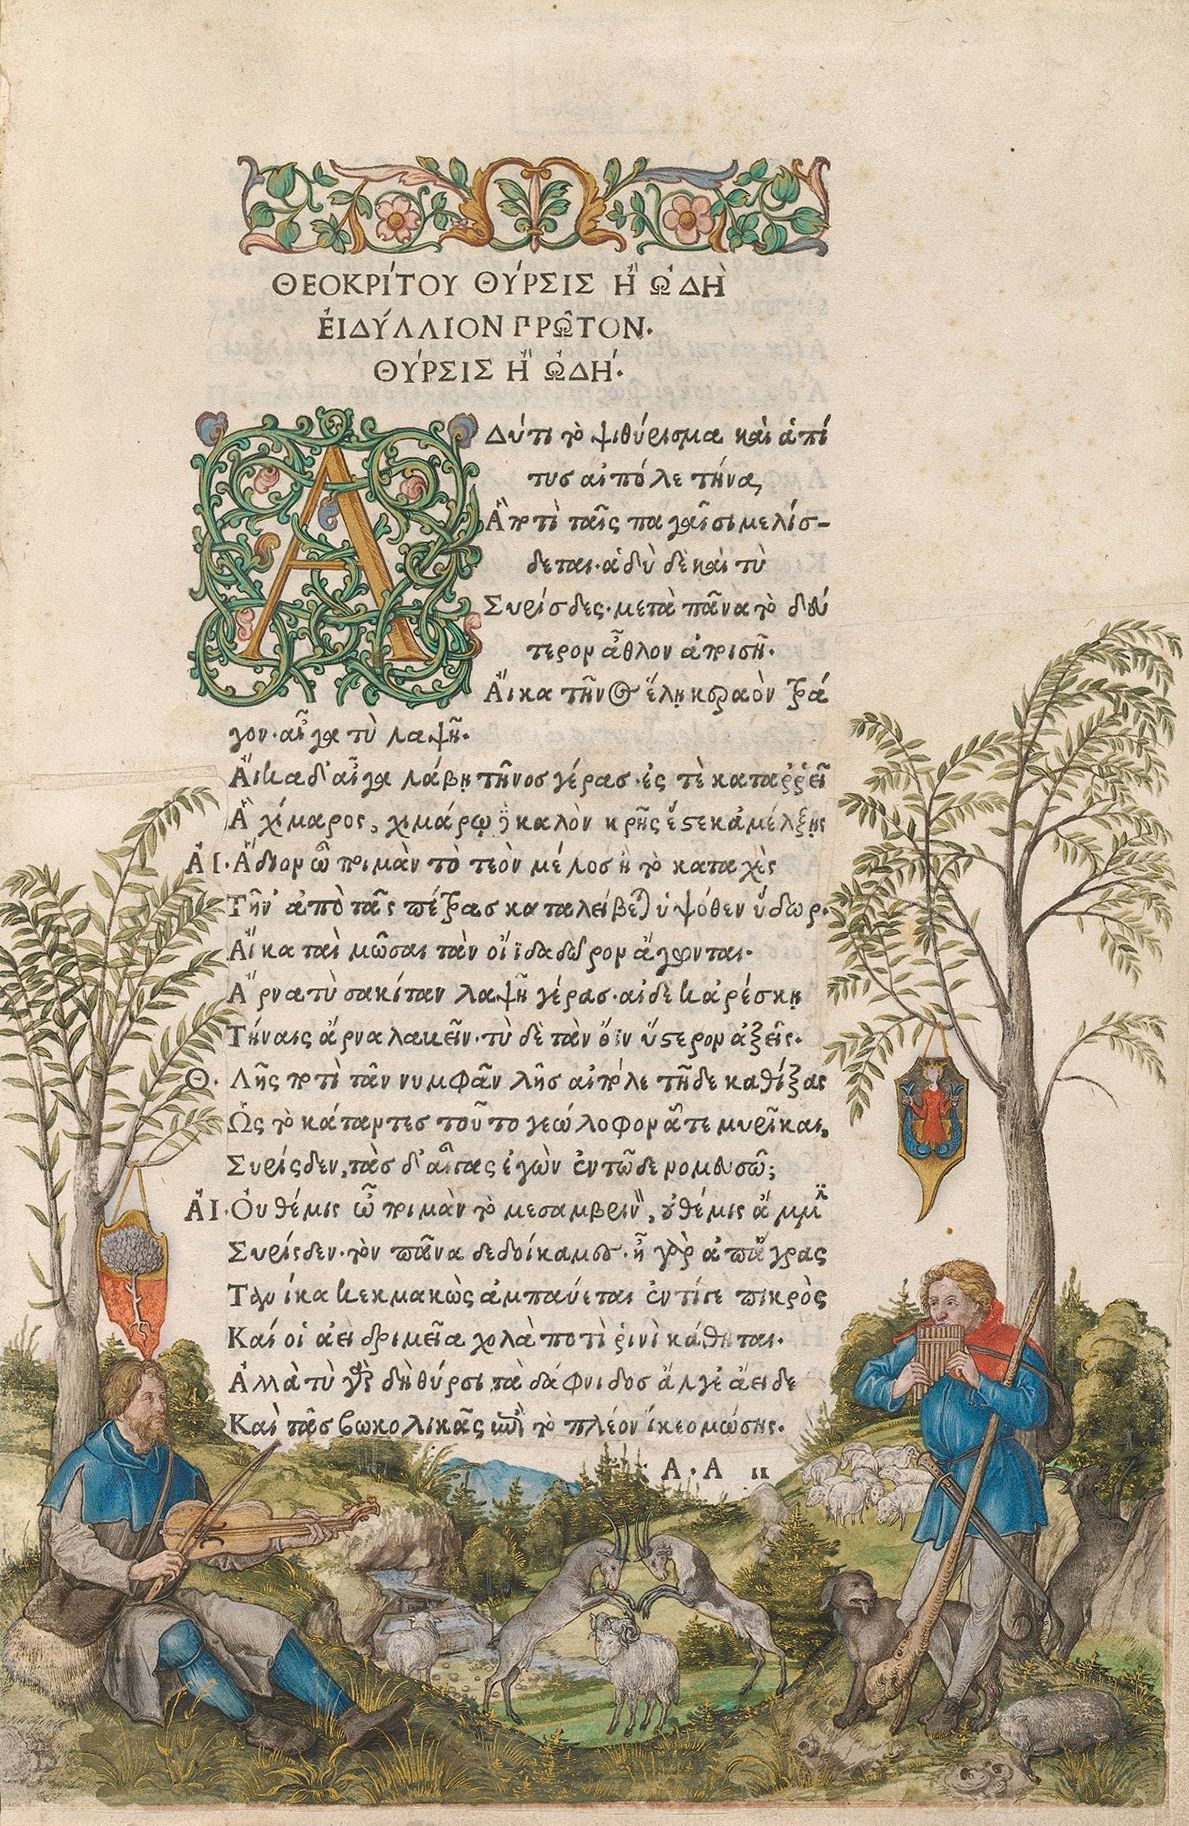 ΘΕΟΚΡΊΤΟΥ ΘΎΡΣΙΣ Ἢ ὨΔῊ
ἘΙΔΎΛΛΙΟΝ ΠΡΩ͂ΤΟΝ.
ΘΎΡΣΙΣ Ἢ ὨΔΉ.
ΑΔύ τι τὸ ψιθύρισμα καὶ ἁ πί
τυς αἰπόλε τήνα,
Ἃ ποτὶ ταῖς παγαῖσι μελίσ-
δεται· ἁδὺ δὲ καὶ τὺ
Συρίσδες· μετὰ πᾶνα τὸ δεύ
τερον ἆθλον ἀποισῇ.
Ἄικα τῆνος ἕλῃ κεραὸν τρά
γον· αἶγα τὺ λαψῇ.
Ἄικα δ' αἶγα λάβῃ τῆνος γέρας· ἐς τὲ καταῤῥεῖ
Ἁ χίμαρος, χιμάρῳ δὲ καλὸν κρῆς ἔστε κ' ἀμέλξῃς
ἈΙ. Ἅδιον ὦ ποιμὰν τὸ τεὸν μέλος ἢ τὸ καταχὲς
Τῆν' ἀπὸ τᾶς πέτρας καταλείβεται ὑψόθεν ὕδωρ.
Ἄικα ταὶ μῶσαι τὰν οἴϊδα δῶρον ἄγωνται.
Ἄρνα τὺ σακίταν λαψῇ γέρας· αἰ δέ κ' ἀρέσκῃ
Τήναις ἄρνα λαβεῖν· τὺ δὲ τὰν ὄϊν ὕστερον ἀξεῖς.
Θ. Λῇς ποτὶ τᾶν νυμφᾶν λῇς αἰπόλε τῇδε καθίξας
Ὡς τὸ κάταντες τοῦτο γεώλοφον ᾇτε μυρῖκαι,
Συρίσδεν, τὰς δ' αἶγας ἐγὼν ἐν τῷδε νομευσῶ;
ἈΙ. Οὐ θέμις ὦ ποιμὰν τὸ μεσαμβρινὸν, οὐ θέμις ἄμμιν
Συρίσδεν· τὸν πᾶνα δεδοίκαμες· ἦ γὰρ ἀπ' ἄγρας
Τανίκα κεκμακὼς ἀμπαύεται ἐντί γε πικρὸς
Καί οἱ ἀεὶ δριμεῖα χολὰ ποτὶ ῥινὶ κάθηται.
Ἀλλὰ τὺ γὰρ δὴ θύρσι τὰ δάφνιδος ἄλγε' ἄειδες
Καὶ τᾶς βωκολικᾶς ἐπὶ τὸ πλέον ἵκεο μώσης.
Α.Α ιι